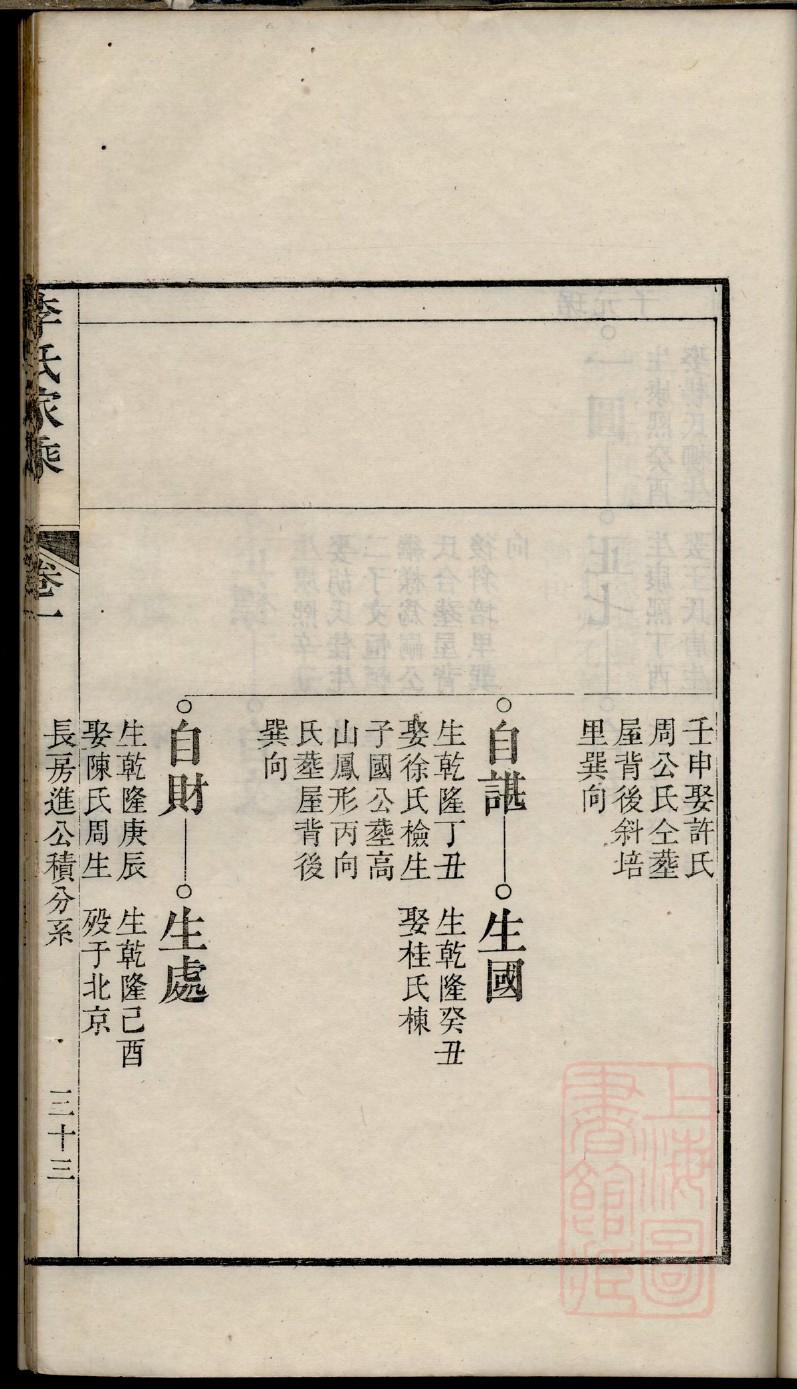 壬申娶許氏
周公氏仝塟
屋背後斜培
里巽向
自諶
生國
生乾隆丁丑
生乾隆癸丑
娶徐氏檢生
娶桂氏棟
子國公塟高
山鳳形丙向
氏塟屋背後
巽向
自財
生處
生乾隆庚辰
生乾隆己酉
娶陳氏周生
歿于北京
李氏家乘
卷一
長房進公積分系
三十三
上海圖
書館藏